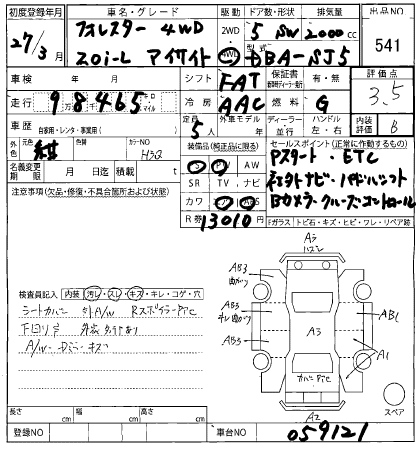 初度登録年月
27/3月
車名・グレード
フォレスター 4WD
2.0i-L アイサイト
駆動
2WD
4WD
ドア数・形状
5 SW
排気量
2000 cc
型式
DBA-SJ5
出品NO
541
車検 年 月
シフト FAT
保証書
有・無
評価点
3.5
走行 98465
キロ
マイル
冷房 AAC
燃料 G
車歴
自家用・レンタ・事業用( )
定員
5人
外車モデル
年
ディーラー
並行
ハンドル
左・右
内装
評価
B
外色
元色
色替
カラーNO
H3Q
名義変更
期限 月 日
積載 t
装備品(純正品に限る)
PS PW AW
SR TV ナビ
カワ
R券 13010 円
セールスポイント(正常に作動するもの)
Pスタート・ETC
社外ナビ・パドルシフト
Bカメラ・クルーズコントロール
Fガラス トビ石・キズ・ヒビ・ワレ・リペア跡
注意事項(欠品・修復・不具合箇所およびその状態)
検査員記入
内装 汚レ・スレ・キズ・キレ・コゲ・穴
シートカバー 社外A/W
下回りサビ
A/W・ドアミラーキズ
A3
AB3
曲がり
AB3
AB3
A3
AB1
A1
A2
スペア
長さ cm
幅 cm
高さ cm
登録NO
車台NO
059121